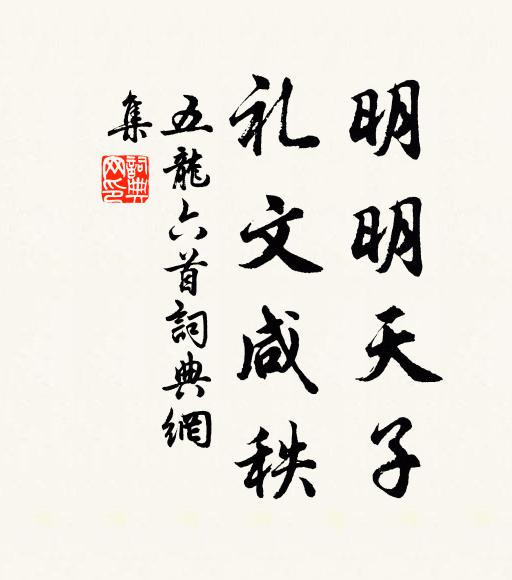 明明天子
礼文咸秩
五龍六首詞典網
集
詞典
网印